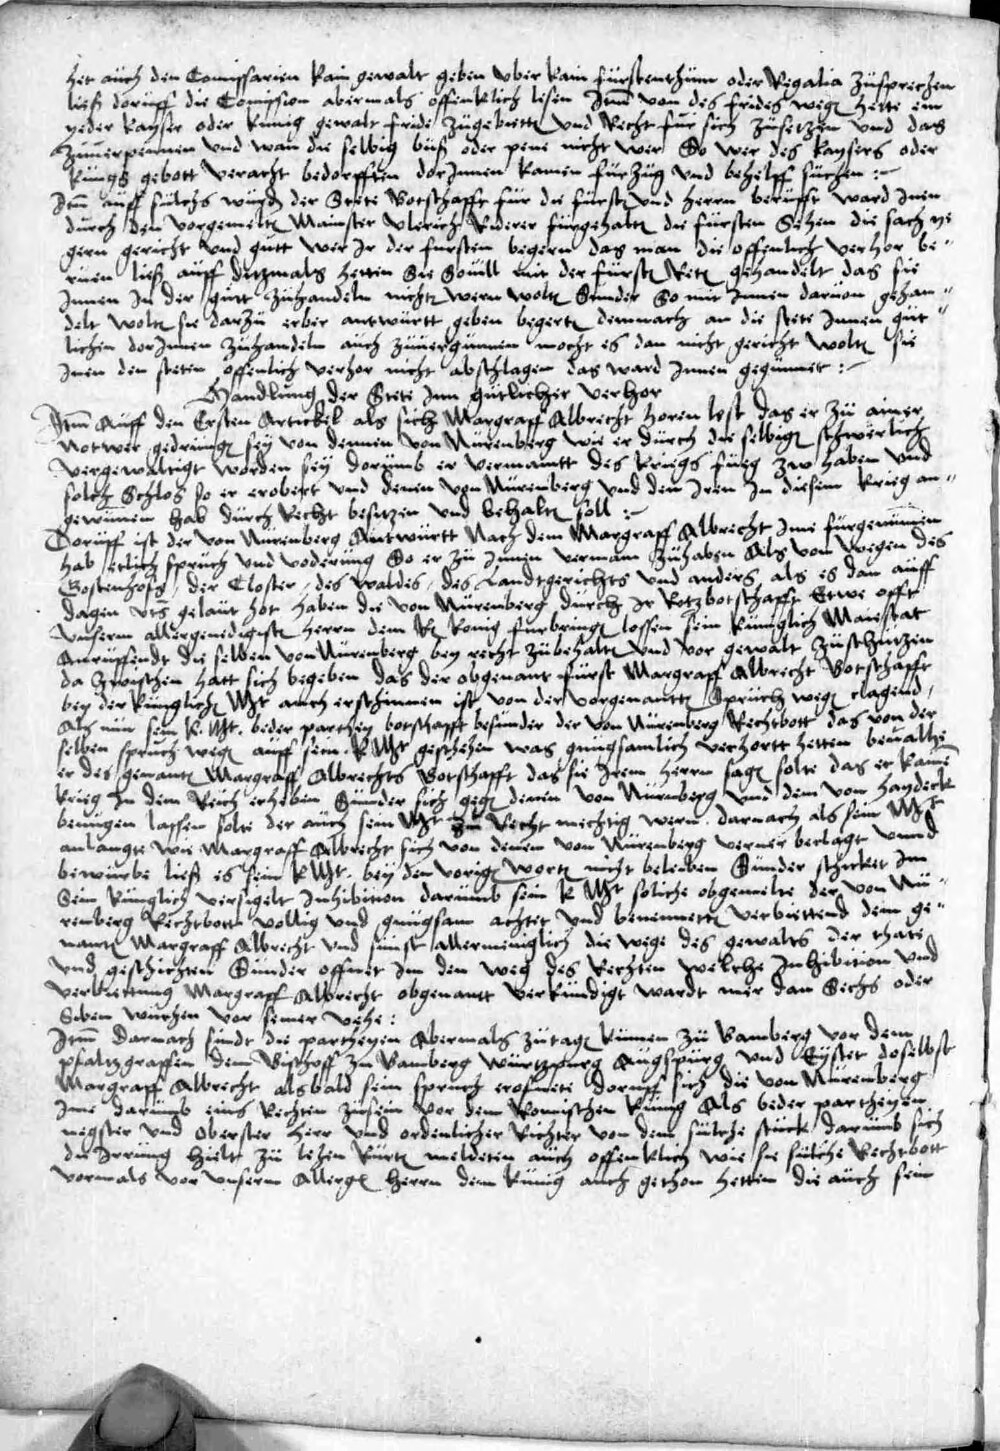 het auch den Comissarien kain gewalt geben vber kain fürstenthum oder Regalia zusprechen
ließ doruff die Comission abermals offenlich lesen Item von des frides wegen hette ein
yeder kayser oder kunig gewalt fride zugebietten vnd Recht für sich zusetzen vnd das
zuuerpennen vnd wan die selbig buß oder pene nicht wer So wer des kaysers oder
kunigs gebott veracht bedorfften dorInnen kainen fürzug vnd behelff suchen :-
Item auff sulchs wurden der Stete Botschafft für die fürsten vnd herrn berufft ward Inen
durch den vorgemelten Maister Vlerich Riderer fürgehalten die fürsten Sehen die sach ye
gern gericht vnd gutt wer Ir der fursten begern das man die offenlich verhor be-
ruen ließ auff ditzmals hetten Sie Souill mit der fürsten Reten gehandelt das sie
Innen In der gutt zuhandeln nicht wern wolten Sunder So mit Innen daruon gehan-
delt wolten sie darzu erber antwurtt geben begerten demnach an die stete Innen gut-
lichen dorInnen zuhandeln auch zuuergunnen mocht es dan nicht gericht wolten sie
Inen den steten offenlich verhor nicht abschlagen das ward Innen gegunnet :-
Handlung der Stete Inn gutlicher verhor
Item Auff den Ersten Artickel als sich Margraff Albrecht horen lest das er zu ainer
Notwer gedrungen sey von dennen von Nurenberg wie er durch die selbigen schwerlich
vergewaltigt worden sey dorumb er vermaintt des kriegs fueg zw haben vnd
solch Schlos so er erobert vnd denen von Nürenberg vnd den Iren In diesem krieg an-
gewunnen hab durch Recht besitzen vnd behalten soll :-
Doruff ist der von Nurenberg Antwurtt Nach dem Margraff Albrecht Ime fürgenumen
hab etlich spruch vnd voderung So er zu Innen vermain zuhaben Als von wegen des
Gostenhofs, der Closter, des waldes, des Landtgerichts vnd anders als es dan auff
dagen gelaut hot haben die von Nürenberg durch Ir Retzbotschafft Etwe offt
Vnserm allergenedigisten herrn dem R. konig furbringen lossen sein kunglich Maiestat
Anruffendt die selben von Nurenberg bey recht zubehalten vnd vor gewalt zuschutzen
da zwischen hatt sich begeben das der obgenant fürst Margraff Albrecht Botschafft
bey der kunglichen Mt auch erschinnen ist von der vorgenantten Spruch wegen clagend,
Als nun sein k. Mt. beder partheyen botschafft besunder der von Nürenberg Rechtbott das von der
selben spruch wegen auff sein k. Mt geschehen was gnugsamlich verhortt hetten beualhe
er des genanten Margraff Albrechts Botschafft das sie Irem herrn sagen solte das er kainen
krieg In dem Reich erheben Sunder sich gegen denen von Nürenberg vnd dem von Haydeck
benugen lassen solte der auch sein Mt zu Recht mechtig wern darnach als sein Mt
anlangte wie Margraff Albrecht sich von denen von Nürenberg verner beclagt vnnd
bewurbe ließ es sein k Mt. bey den vorigen worten nicht beleiben Sunder schicket Im
Sein kunglich versigelt Inhibition darumb sein k Mt soliche obgemelte der von Nü-
renberg Rechtbott vollig vnd gnugsam achtet vnd benennett verbiettend dem ge-
nanten Margraff Albrecht vnd sunst allermeniglich die wege des gewalts der thate
vnd geschichten Sunder offnet Im den weg des Rechten welche Inhibition vnd
verbiettung Margraff Albrecht obgenantt verkundigt wardt mer dan Sechs oder
Siben wuchen vor seiner vehe :
Item Darnach sindt die partheyen Abermals zutagen kumen zu Bamberg vor dem
pfaltzgraffen dem Bischoff zu Bamberg würtzpurg Augspurg vnd Eystet doselbst
Margraff Albrecht alsbald sein spruch erofnete doruff sich die von Nürenberg
Ime darumb eins Rechten zusein vor dem Romischen kunig Als beder partheyen
negster vnd oberster herr vnd ordenlicher Richter von dem sulche stuck darumb sich
die Irrung hielt zu lehen Rurten meldeten auch offenlich wie sie sulche Rechtbott
vormals vor vnserm Allergen herrn dem kunig auch gethon hetten die auch sein